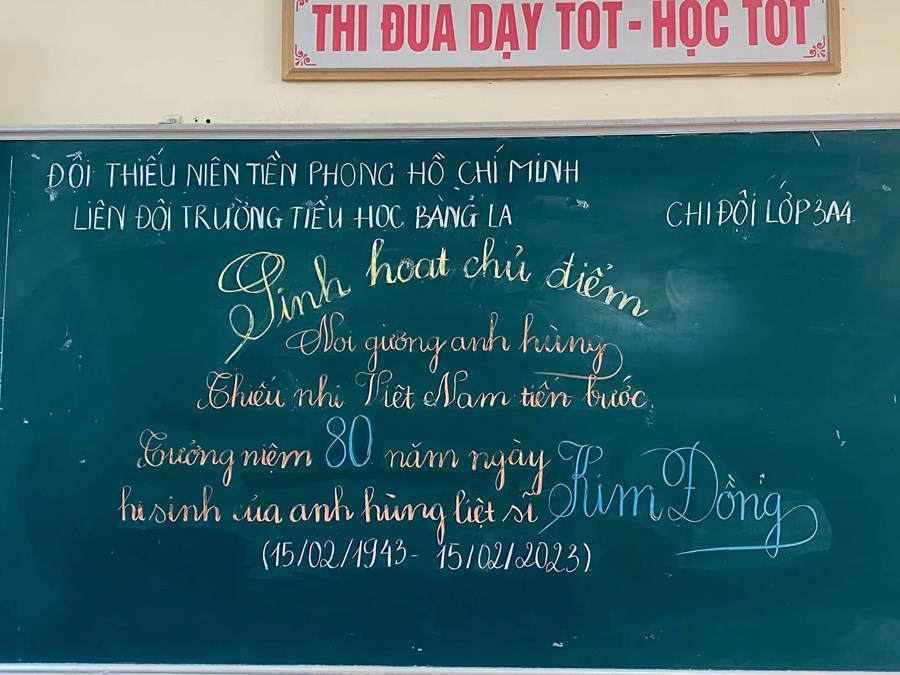 THI ĐUA DẠY TỐT - HỌC TỐT
ĐỘI THIẾU NIÊN TIỀN PHONG HỒ CHÍ MINH
LIÊN ĐỘI TRƯỜNG TIỂU HỌC BÀNG LA
CHI ĐỘI LỚP 3A4
Sinh hoạt chủ điểm
Noi gương anh hùng
Thiếu nhi Việt Nam tiến bước
Tưởng niệm 80 năm ngày
hi sinh của anh hùng liệt sĩ Kim Đồng
(15/02/1943 - 15/02/2023)